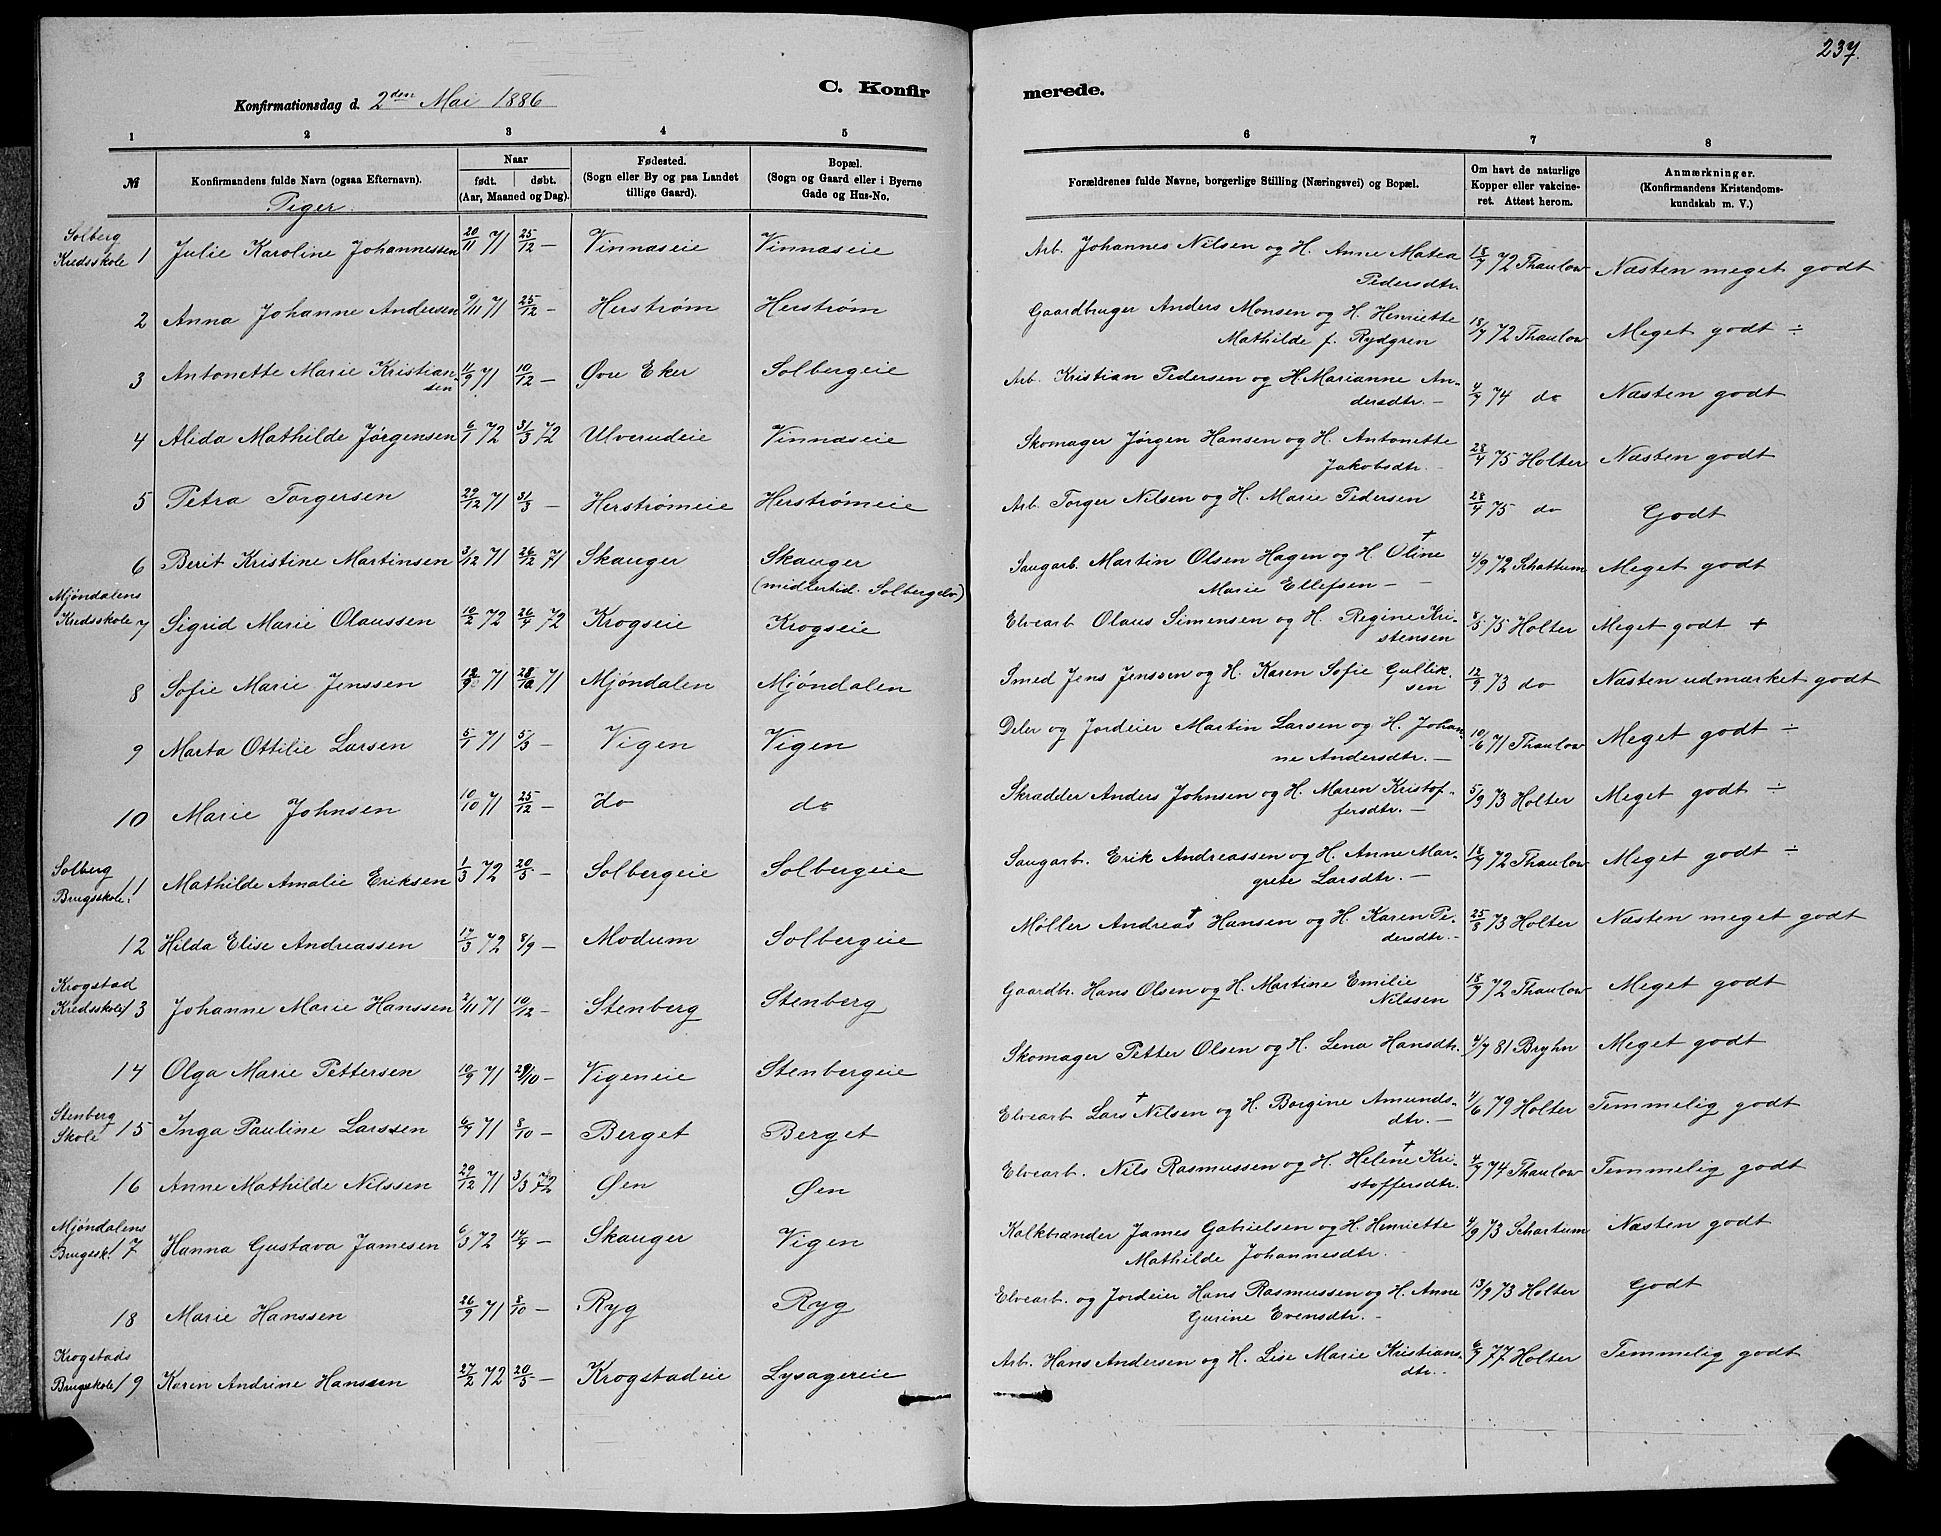 237.
C. Konfirmerede.
Konfirmationsdag d. 2den Mai 1886
1 2 3 4 5 6 7 8
№
Konfirmandens fulde Navn (ogsaa Efternavn).
Naar
født. døbt.
(Aar, Maaned og Dag).
Fødested.
(Sogn eller By og paa Landet
tillige Gaard).
Bopæl.
(Sogn og Gaard eller i Byerne
Gade og Hus-No.
Forældrenes fulde Navne, borgerlige Stilling (Næringsvei) og Bopæl.
Om havt de naturlige
Kopper eller vakcine-
ret. Attest herom.
Anmærkninger.
(Konfirmandens Kristendoms-
kundskab m. V.)
Piger
Solberg
Kredsskole 1 Julie Karoline Johannessen 20/11 71 25/12 — Vinnaseie Vinnaseie Arb. Johannes Nilsen og H. Anne Matea
Pedersdtr. 18/7 72 Thaulow Næsten meget godt
2 Anna Johanne Andersen 9/11 71 25/12 — Herstrøm Herstrøm Gaardbruger Anders Monsen og H. Henriette
Mathilde f. Rydgren 18/7 72 Thaulow Meget godt ÷
3 Antonette Marie Kristian-
sen 11/9 71 10/12 — Øvre Eker Solbergeie Arb. Kristian Pedersen og H. Marianne An-
dersdtr. — 4/7 74 do Næsten godt
4 Alida Mathilde Jørgensen 6/1 72 31/3 72 Ulverudeie Vinnaseie Skomager Jørgen Hansen og H. Antonette
Jakobsdtr. — 28/4 75 Holter Næsten godt
5 Petra Torgersen 29/12 71 31/3 — Herstrømeie Herstrømeie Arb. Torger Nilsen og H. Marie Pedersen 28/4 75 do Godt
6 Berit Kristine Martinsen 3/12 71 26/12 71 Skauger Skauger
(midlertid. Solbergelv) Saugarb. Martin Olsen Hagen og H. Oline †
Marie Ellefsen — 4/9 72 Schattum Meget godt
Mjøndalens
Kredsskole 7 Sigrid Marie Olaussen 10/2 72 26/4 72 Krogseie Krogseie Elvearb Olaus Simensen og H. Regine Kri-
stensen 8/5 75 Holter Meget godt +
8 Sofie Marie Jenssen 71 71 Mjøndalen Mjøndalen Smed Jens Jenssen og H. Karen Sofie Gullik-
sen 12/9 73 do Næsten udmærket godt
9 Marta Ottilie Larsen 5/1 71 5/3 — Vigen Vigen Deler og Jordeier Martin Larsen og H. Johan-
ne Andersdtr. — 10/6 71 Thaulow Meget godt ÷
10 Marie Johnsen 10/10 71 25/12 — do do Skrædder Anders Johnsen og H. Maren Kristof-
fersdtr. — 5/9 73 Holter Meget godt ÷
Solberg
Brugsskole 11 Mathilde Amalie Eriksen 1/3 72 20/5 — Solbergeie Solbergeie Saugarb. Erik Andreassen og H. Anne Mar-
grete Larsdtr. — 18/7 72 Thaulow Meget godt ÷
12 Hilda Elise Andreassen 17/3 72 8/9 — Modum Solbergeie Møller Andreas † Hansen og H. Karen Pe-
dersdtr. — 25/8 73 Holter Næsten meget godt
Krogstad
Kredsskole 13 Johanne Marie Hanssen 2/11 71 10/12 — Stenberg Stenberg Gaardbr. Hans Olsen og H. Martine Emilie
Nilssen 18/7 72 Thaulow Meget godt
14 Olga Marie Pettersen 10/9 71 29/10 — Vigeneie Stenbergeie Skomager Petter Olsen og H. Lena Hansdtr. 4/7 81 Bryhn Meget godt
Stenberg
Skole 15 Inga Pauline Larssen 6/7 71 8/10 — Berget Berget Elvearb Lars † Nilsen og H. Borgine Amunds-
dtr. — 4/6 79 Holter Temmelig godt
16 Anne Mathilde Nilssen 29/12 71 3/3 72 Øen Øen Elvearb. Nils Rasmussen og H. Helene † Kri-
stoffersdtr. 4/7 74 Thaulow Temmelig godt
Mjøndalens
Brugssk. 17 Hanna Gustava Jamesen 6/3 72 14/4 — Skauger Vigen Kalkbrænder James Gabrielsen og H. Henriette
Mathilde Johannesdtr. 4/9 73 Schartum Næsten godt
18 Marie Hanssen 26/9 71 8/10 — Ryg Ryg Elvearb. og Jordeier Hans Rasmussen og H. Anne
Gurine Evensdtr. — 13/9 73 Holter Godt
Krogstads
Brugsskole 19 Karen Andrine Hanssen 27/2 72 20/5 — Krogstadeie Lysagereie Arb. Hans Andersen og H. Lise Marie Kristians-
dtr. 6/7 77 Holter Temmelig godt